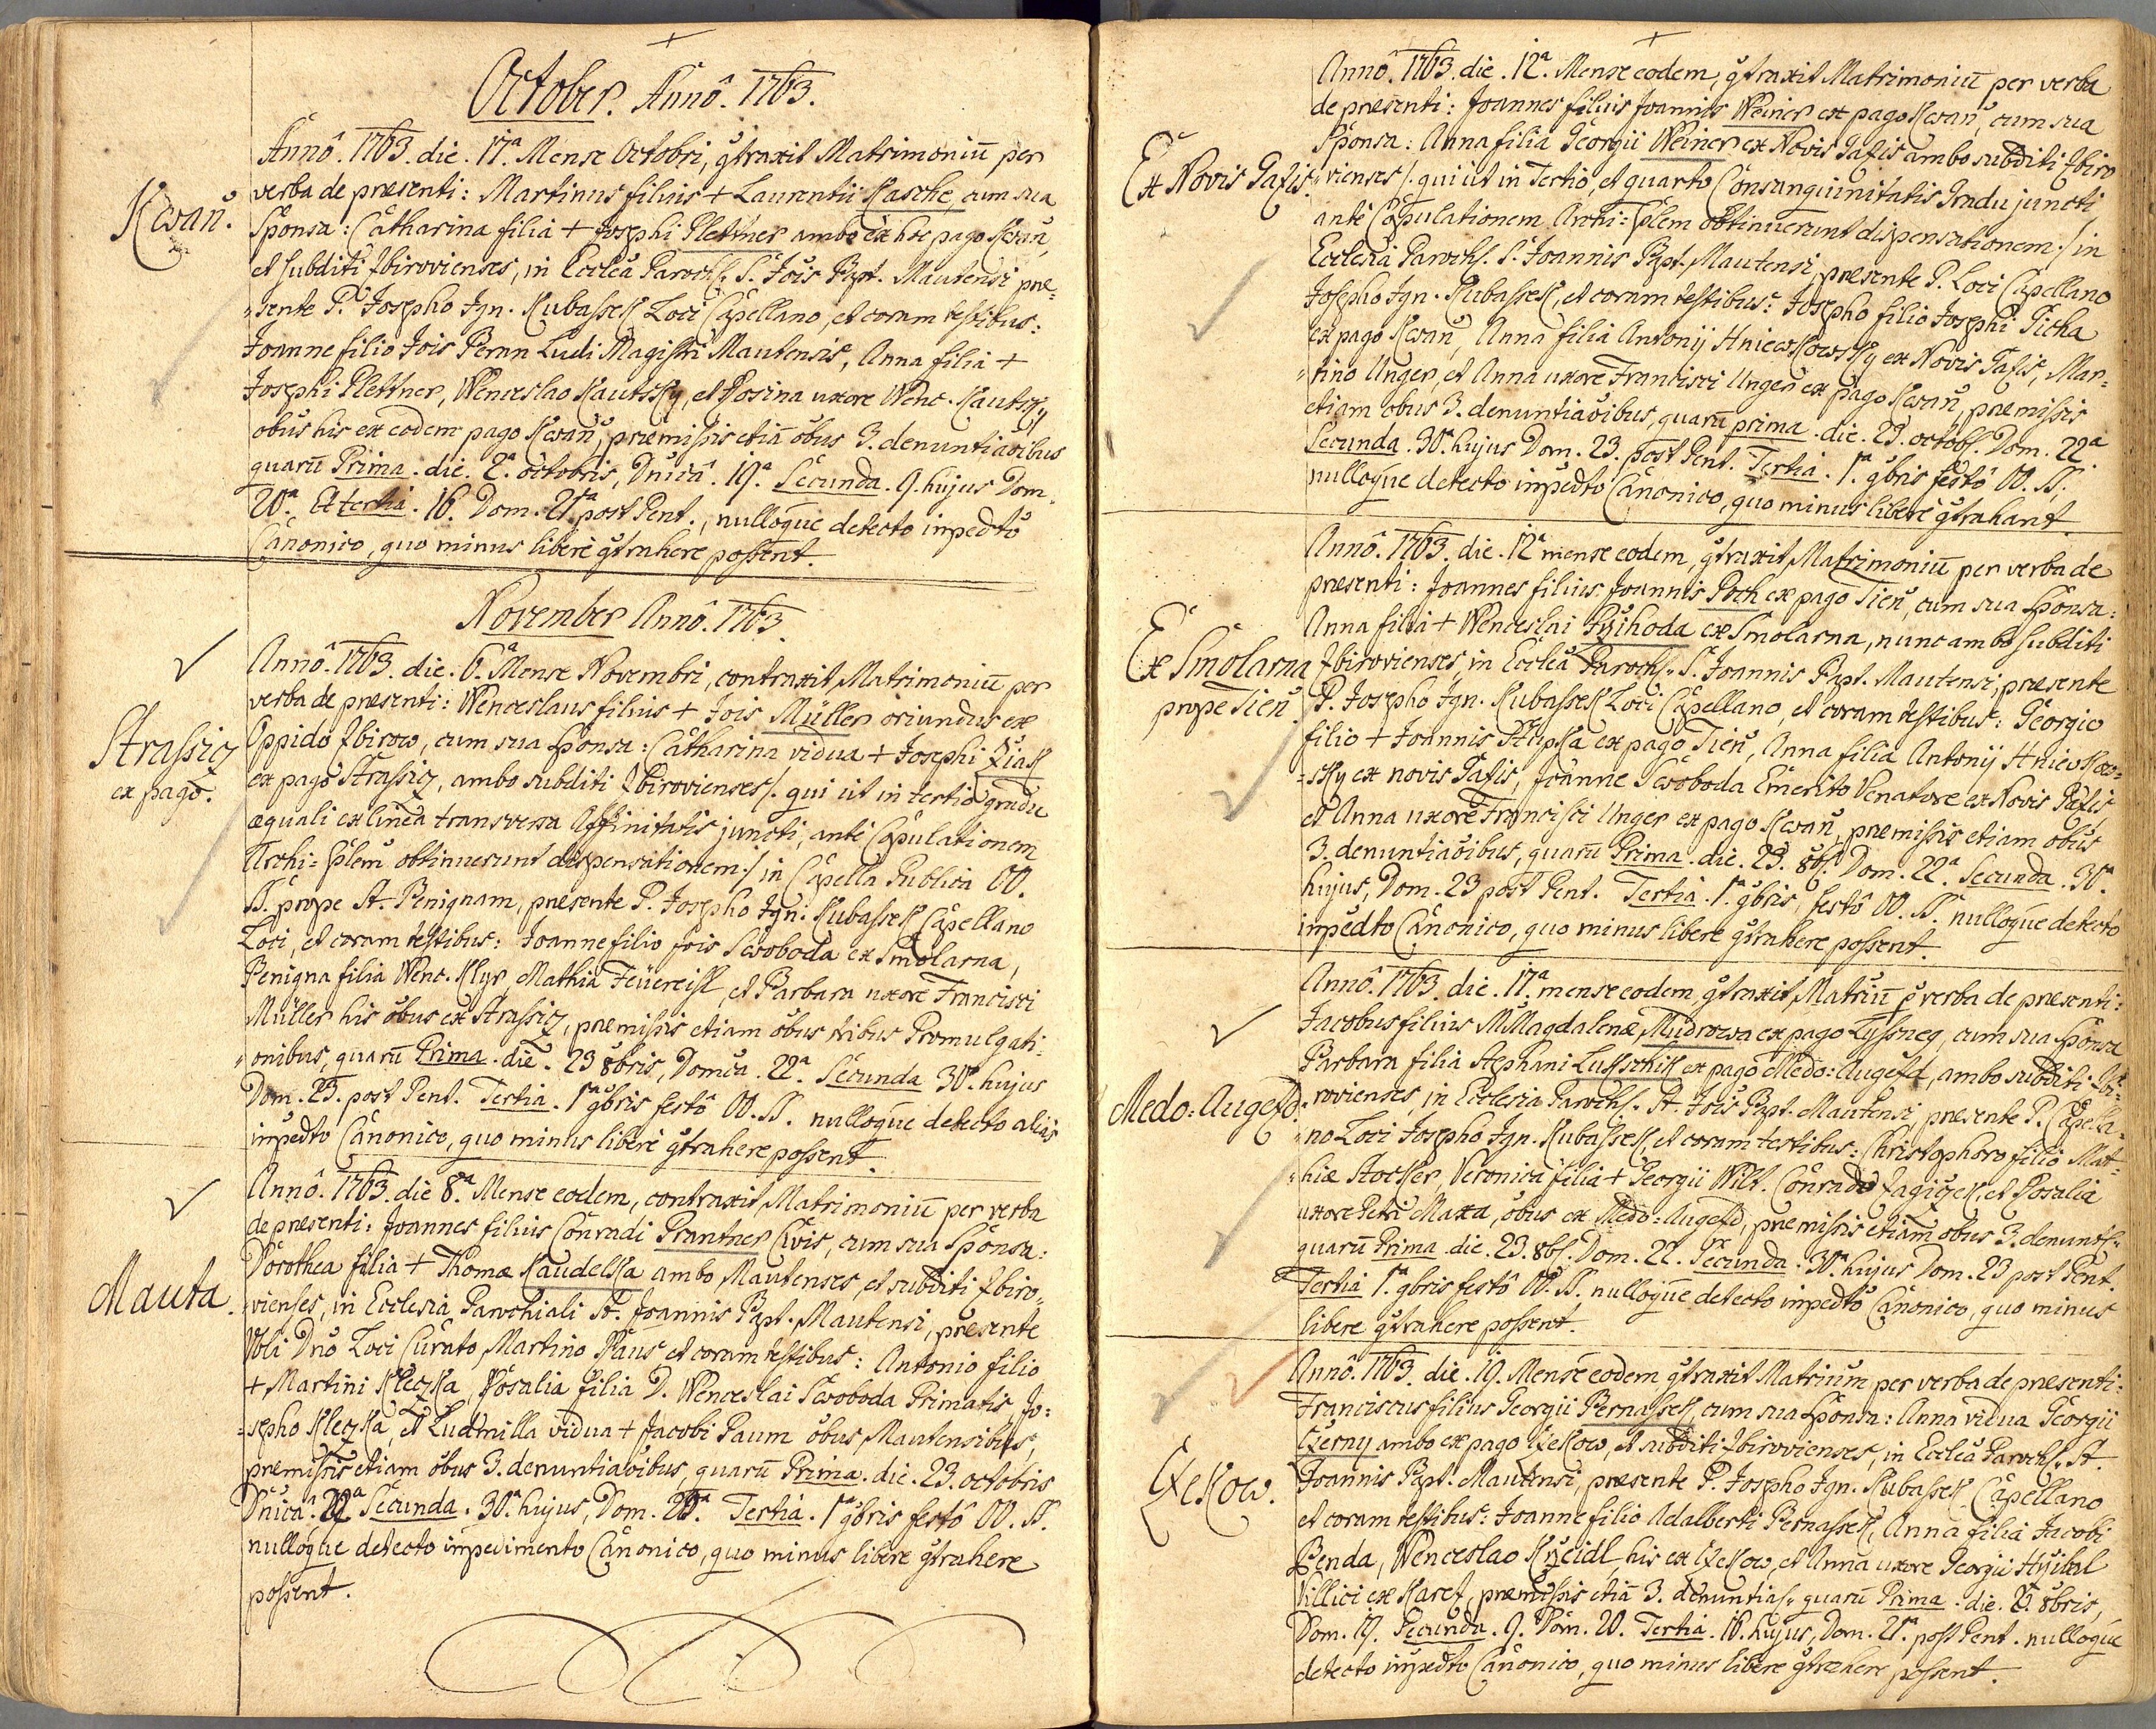 October. Annô. 1763.
Kwaň.
Annô. 1763. die. 17.ª Mense Octobri, gtraxit Matrimoniū per
verba de præsenti: Martinus filius + Laurentii Kasche, cum sua
Sponsa: Catharina filia + Josephi Plettner ambo ex hoc pago Kwaň,
et subditi Zbirovienses, in Ecclêa Paroch. S. Jois Bpt. Mautensi præ=
=sente P. Josepho Ign. Kubassek Loci Capellano, et coram testibus:
Joanne filio Jois Beran Ludi Magistri Mautensis, Anna filia +
Josephi Plettner, Wenceslao Kautsky, et Rosina uxore Wenc. Kautsky
obus his ex eodem pago Kwaň, præmissis etiā obus 3. denuntiaoibus
quarū Prima. die. 2.ª octobris, Dnicâ. 19.ª Secunda. 9. hujus Dom.
20.ª Et tertia. 16. Dom. 21.ª post Pent., nulloque detecto impedto
Canonico, quo minus liberè gtrahere possent.
November Annô. 1763.
Strassicz
ex pago.
Annô. 1763. die. 6.ª Mense Novembri, contraxit Matrimoniū per
verba de præsenti: Wenceslaus filius + Jois Müller oriundus ex
Oppido Zbirow, cum sua Sponsa: Catharina vidua + Josephi Žiak
ex pago Strassicz, ambo subditi Zbirovienses /. qui ut in tertio gradu
æquali ex linea transversa Affinitatis juncti, antè Capulationem
Archi=Eplem obtinuerunt dispensationem ./ in Capella Publica OO.
SS. prope St. Benignam, præsente P. Josepho Ign. Kubassek Capellano
Loci, et coram testibus: Joanne filio Jois Swoboda ex Smolarna,
Benigna filia Wenc. Klyr, Mathia Feüereisl, et Barbara uxore Francisci
Müller his obus ex Strassicz, præmissis etiam obus tribus Promulgati=
=onibus, quarū Prima. die. 23 8bris, Domca. 22.ª Secunda 30.ª hujus
Dom. 23. post Pent. Tertia. 1.ª 9bris festô OO. SS. nulloque detecto alias
impedto Canonico, quo minus liberè gtrahere possent.
Mauta.
Annô. 1763. die 8.ª Mense eodem, contraxit Matrimoniū per verba
de præsenti: Joannes filius Conradi Prantner Civis, cum sua Sponsa:
Dorothea filia + Thomæ Kaudelka ambo Mautenses, et subditi Zbiro=
=vienses, in Ecclesia Parochiali St. Joannis Bpt. Mautensi, præsente
Dno Loci Curato Martino Paus et coram testibus: Antonio filio
+ Martini Kleczka, Rosalia filia D. Wenceslai Swoboda Primatis, Jo=
=sepho Kleczka, et Ludmilla vidua + Jacobi Baum obus Mautensibus,
præmissis etiam obus 3. denuntiaoibus, quarū Prima. die. 23. octobris
Dnicâ. 22.ª Secunda. 30.ª hujus, Dom. 23.ª Tertia. 1.ª 9bris festô OO. SS.
nulloque detecto impedimento Canonico, quo minus libere gtrahere
possent.
Ex Novis Tafis.
Annô. 1763. die. 12.ª Mense eodem, gtraxit Matrimoniū per verba
de præsenti: Joannes filius Joannis Weiner ex pago Kwaň, cum sua
Sponsa: Anna filia Georgii Weiner ex Novis Tafis ambo subditi Zbiro
=vienses /. qui ut in Tertio, et quarto Consanguinitatis Gradu juncti,
antè Capulationem Archi=Eplem obtinuerunt dispensationem ./ in
Ecclesia Paroch. S. Joannis Bpt. Mautensi, præsente P. Loci Capellano
Josepho Ign. Kubassek, et coram testibus: Josepho filio Josephi Picha
ex pago Kwaň, Anna filia Antonij Hniewkowsky ex Novis Tafis, Mar=
=tino Unger, et Anna uxore Francisci Unger ex pago Kwaň, præmissis
etiam obus 3. denuntiaoibus, quarū prima. die. 23. octob. Dom. 22.ª
Secunda. 30.ª hujus Dom. 23. post Pent. Tertia. 1.ª 9bris festô OO. SS.
nulloque detecto impedto Canonico, quo minus liberè gtrahant
Ex Smolarna
prope Tieň.
Annô. 1763. die. 12.ª mense eodem, gtraxit Matrimoniū per verba de
præsenti: Joannes filius Joannis Poch ex pago Tieň, cum sua Sponsa:
Anna filia + Wenceslai Pržihoda ex Smolarna, nunc ambo subditi
Zbirovienses, in Ecclêa Paroch. S. Joannis Bpt. Mautensi, præsente
P. Josepho Ign. Kubassek Loci Capellano, et coram testibus: Georgio
filio + Joannis Krupka ex pago Tieň, Anna filia Antonij Hniewkow=
=sky ex novis Tafis, Joanne Swoboda Emerito Venatore ex Novis Tafis
et Anna uxore Francisci Unger ex pago Kwaň, præmissis etiam obus
3. denuntiaoibus, quarū Prima. die. 23. 8b. Dom. 22.ª Secunda. 30.ª
hujus, Dom. 23 post Pent. Tertia. 1.ª 9bris, festô OO. SS. nulloque detecto
impedto Canonico, quo minus libere gtrahere possent.
Medo=Augezd.
Annô. 1763. die. 17.ª mense eodem, gtraxit Matriū p verba de præsenti:
Jacobus filius M Magdalenæ Mudrowa ex pago Lyssneg, cum sua Sponsa
Barbara filia Stephani Lukschik ex pago Medo=Augezd, ambo subditi Zbi=
=rovienses, in Ecclesia Paroch. St. Jois Bpt. Mautensi, præsente P. Capella=
=no Loci Josepho Ign. Kubassek, et coram testibus: Christophoro filio Mat=
=hiæ Stocker, Veronica filia + Georgii Wilt. Conrado Zagiczek, et Rosalia
uxore Petri Maxa, obus ex Medo=Augezd, præmissis etiam obus 3. denunt.
quarū Prima. die. 23. 8b. Dom. 22. Secunda. 30.ª hujus Dom. 23 post Pent.
Tertia 1.ª 9bris festô OO. SS. nulloque detecto impedto Canonico, quo minus
libere gtrahere possent.
Czekow.
Annô. 1763. die. 19. Mense eodem gtraxit Matrium per verba de præsenti:
Franciscus filius Georgii Bernassek, cum sua Sponsa: Anna vidua Georgii
Czerny ambo ex pago Czekow, et subditi Zbirovienses, in Ecclêa Paroch. St.
Joannis Bpt. Mautensi, præsente P. Josepho Ign. Kubassek Capellano
et coram testibus: Joanne filio Adalberti Bernassek, Anna filia Jacobi
Benda, Wenceslao Kržeidl, his ex Czekow, et Anna uxore Georgii Hržibal
Villici ex Karez, præmissis etiā 3. denuntia. quarū Prima. die. 2. 8bris,
Dom. 19. Secunda. 9. Dom. 20. Tertia. 16. hujus, Dom. 21.ª post Pent. nulloque
detecto impedto Canonico, quo minus libere gtrahere possent.